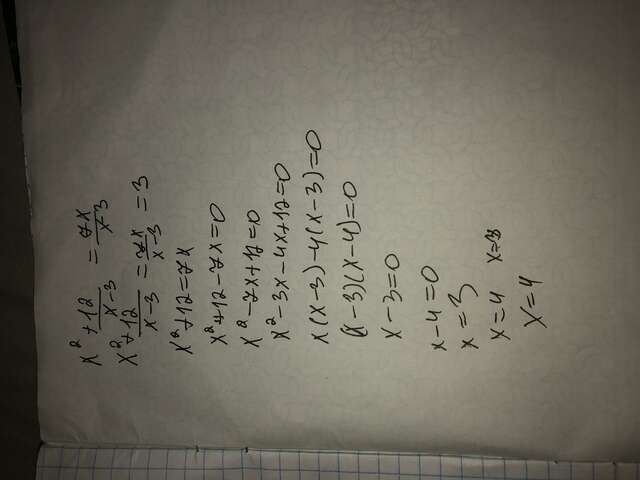 x² + 12 / x - 3 = 7x / x - 3
x² + 12 / x - 3 = 7x / x - 3 = 3
x² + 12 = 7x
x² + 12 - 7x = 0
x² - 7x + 12 = 0
x² - 3x - 4x + 12 = 0
x(x - 3) - 4(x - 3) = 0
(x - 3)(x - 4) = 0
x - 3 = 0
x - 4 = 0
x = 3
x = 4 x = 3
x = 4